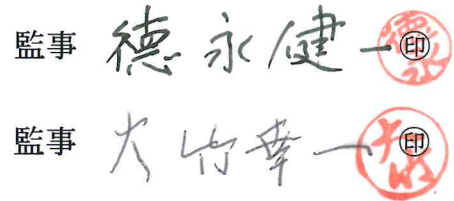 監事 德永健一 ㊞
監事 大竹幸一 ㊞